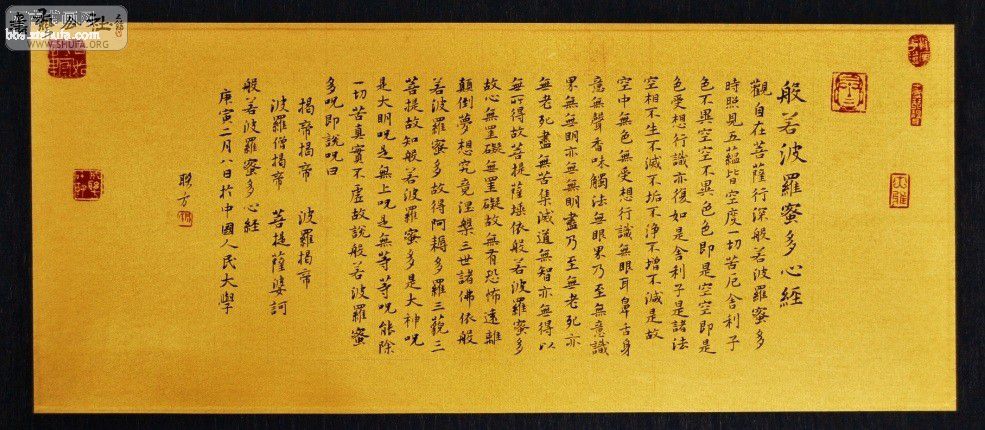 般若波羅蜜多心經
觀自在菩薩行深般若波羅蜜多
時照見五蘊皆空度一切苦厄舍利子
色不異空空不異色色即是空空即是
色受想行識亦復如是舍利子是諸法
空相不生不滅不垢不净不增不減是故
空中無色無受想行識無眼耳鼻舌身
意無聲香味觸法無眼界乃至無意識
界無無明亦無無明盡乃至無老死亦
無老死盡無苦集滅道無智亦無得以
無所得故菩提薩埵依般若波羅蜜多
故心無罣礙無罣礙故無有恐怖遠離
顛倒夢想究竟涅槃三世諸佛依般
若波羅蜜多故得阿耨多羅三藐三
菩提故知般若波羅蜜多是大神呪
是大明呪是無上呪是無等等呪能除
一切苦真實不虛故說般若波羅蜜
多呪即說呪曰
揭帝揭帝　波羅揭帝
波羅僧揭帝　菩提薩婆訶
般若波羅蜜多心經
庚寅二月八日於中國人民大學
聯方
WWW.SHUFA.ORG
bbs.zhsufa.com